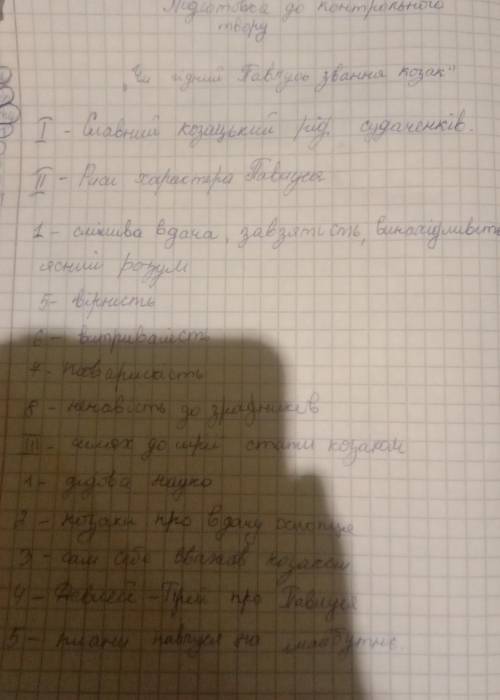 Підготовка до контрольного
твору
„Чи гідний Павлусь звання козак"
I - Славний козацький рід судаченків.
II - Риси характера Павлуся
1 - смілива вдача, завзятість, винахідливість
ясний розум
5 - вірність
6 - витривалість
7 - товариськість
8 - ненависть до зрадників
III - шлях до мрії стати козаком
1 - дідова наука
2 - козаки про вдачу хлопця
3 - сам себе вважав козаком
4 - Девлет - Гірей про Павлуся
5 - плани павлуся на майбутнє.